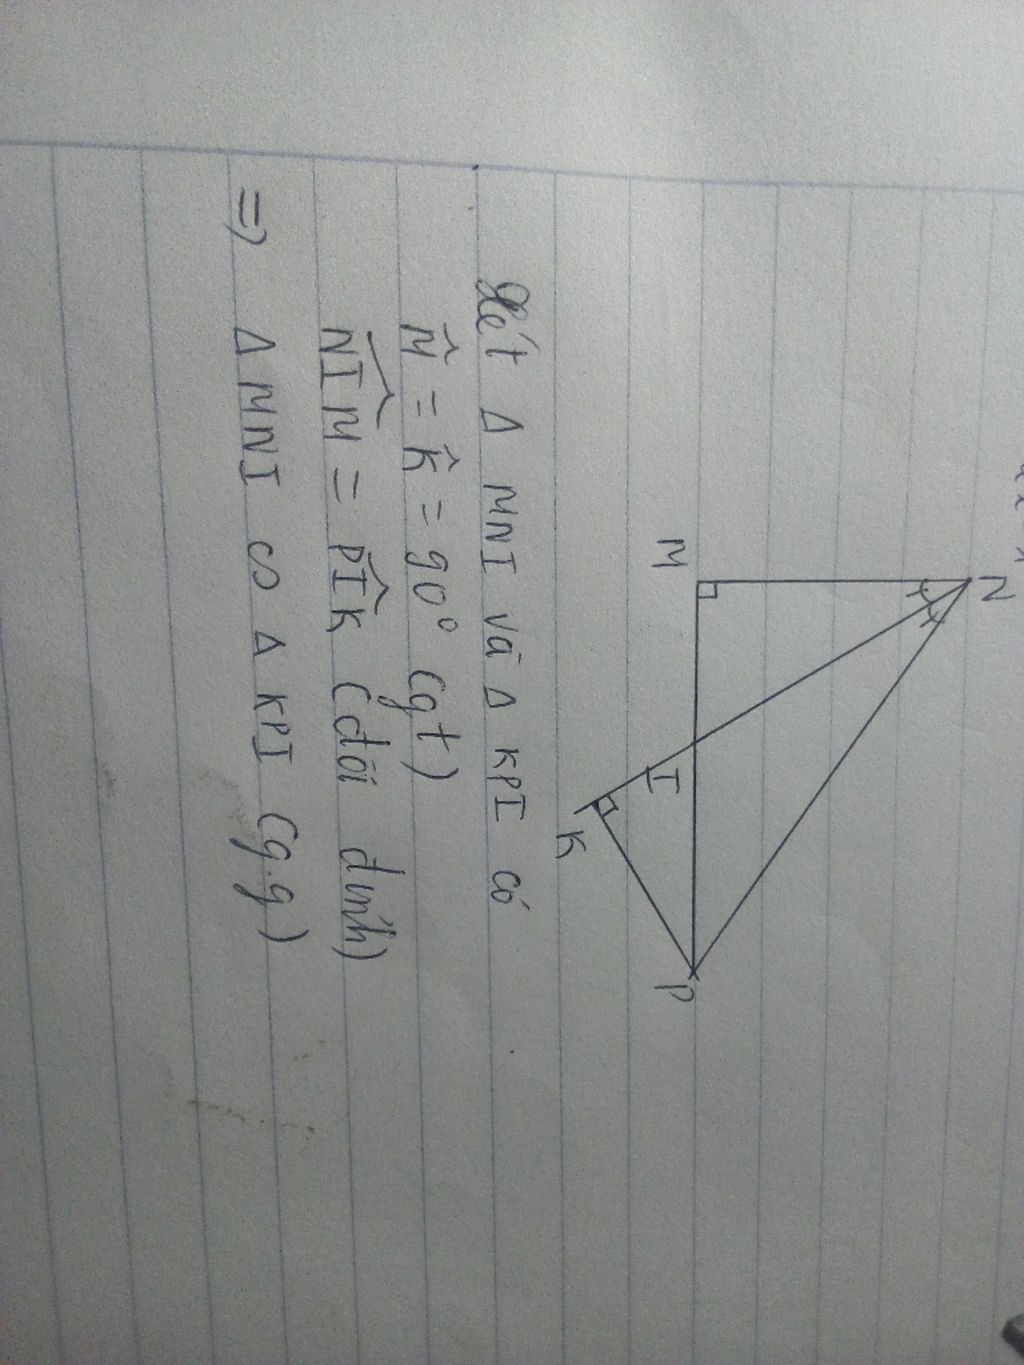 N
M
I
K
P
Xét Δ MNI và Δ KPI có
M̂ = K̂ = 90° (gt)
NÎM = PÎK (đối đỉnh)
=> Δ MNI ∽ Δ KPI (g.g)